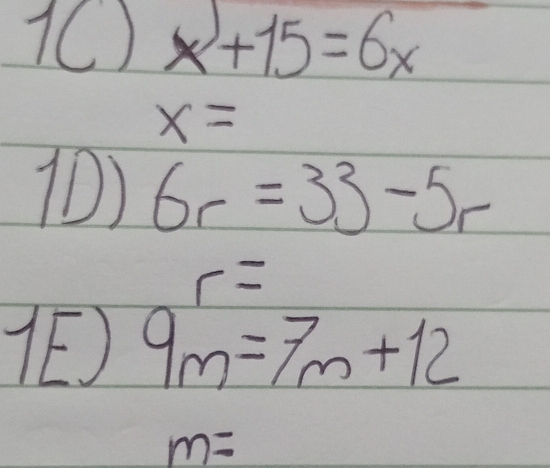 1C) x+15=6x
x=
1D) 6r=33-5r
r=
1E) 9m=7m+12
m=